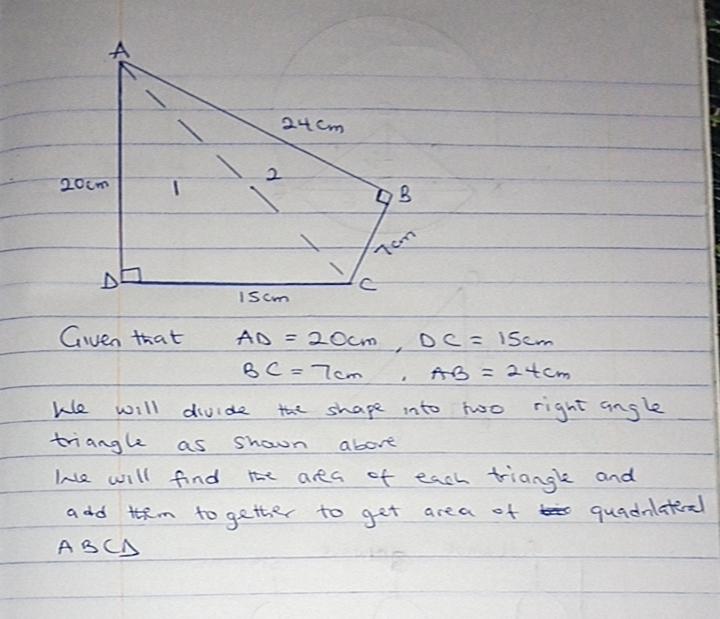 A
24cm
20cm
1
2
B
7cm
D
C
15cm
Given that AD = 20cm, DC = 15cm
BC = 7cm, AB = 24cm
We will divide the shape into two right angle
triangle as shown above
We will find the area of each triangle and
add them together to get area of quadrilateral
ABCD